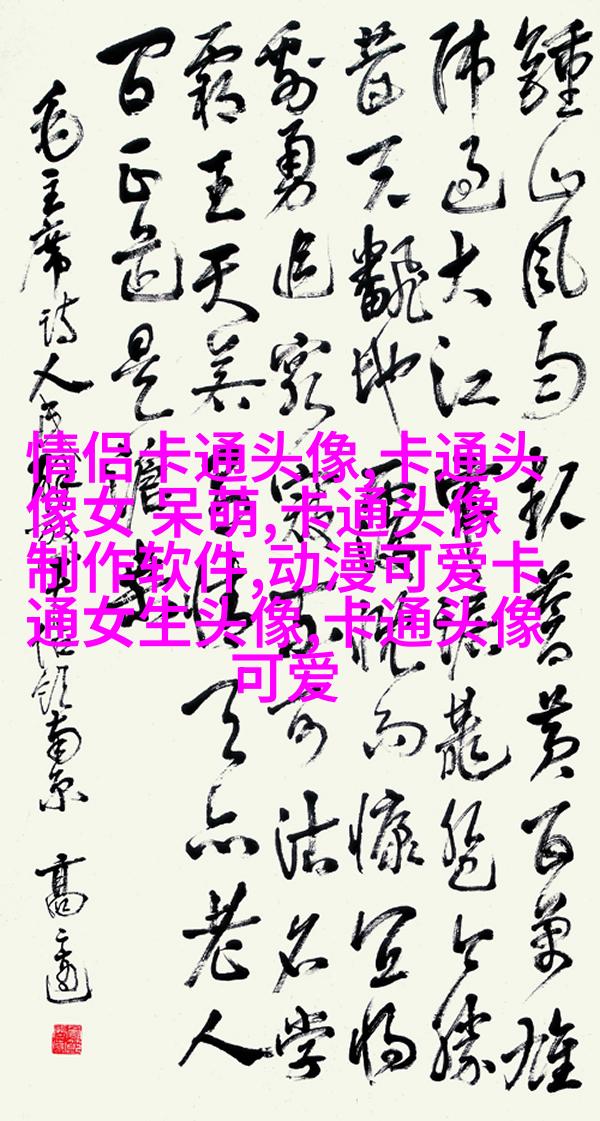 鍾山風雨起蒼黃百萬雄
师过大江虎踞龍盘今勝
昔天翻地覆慨而慷宜将
剩勇追窮寇不可沽名学
霸王天若有情天亦老人
间正道是滄桑
毛主席诗人民解放军占领南京
情侣卡通头像,卡通头
像女 呆萌,卡通头像
制作软件,动漫可爱卡
通女生头像,卡通头像
可爱